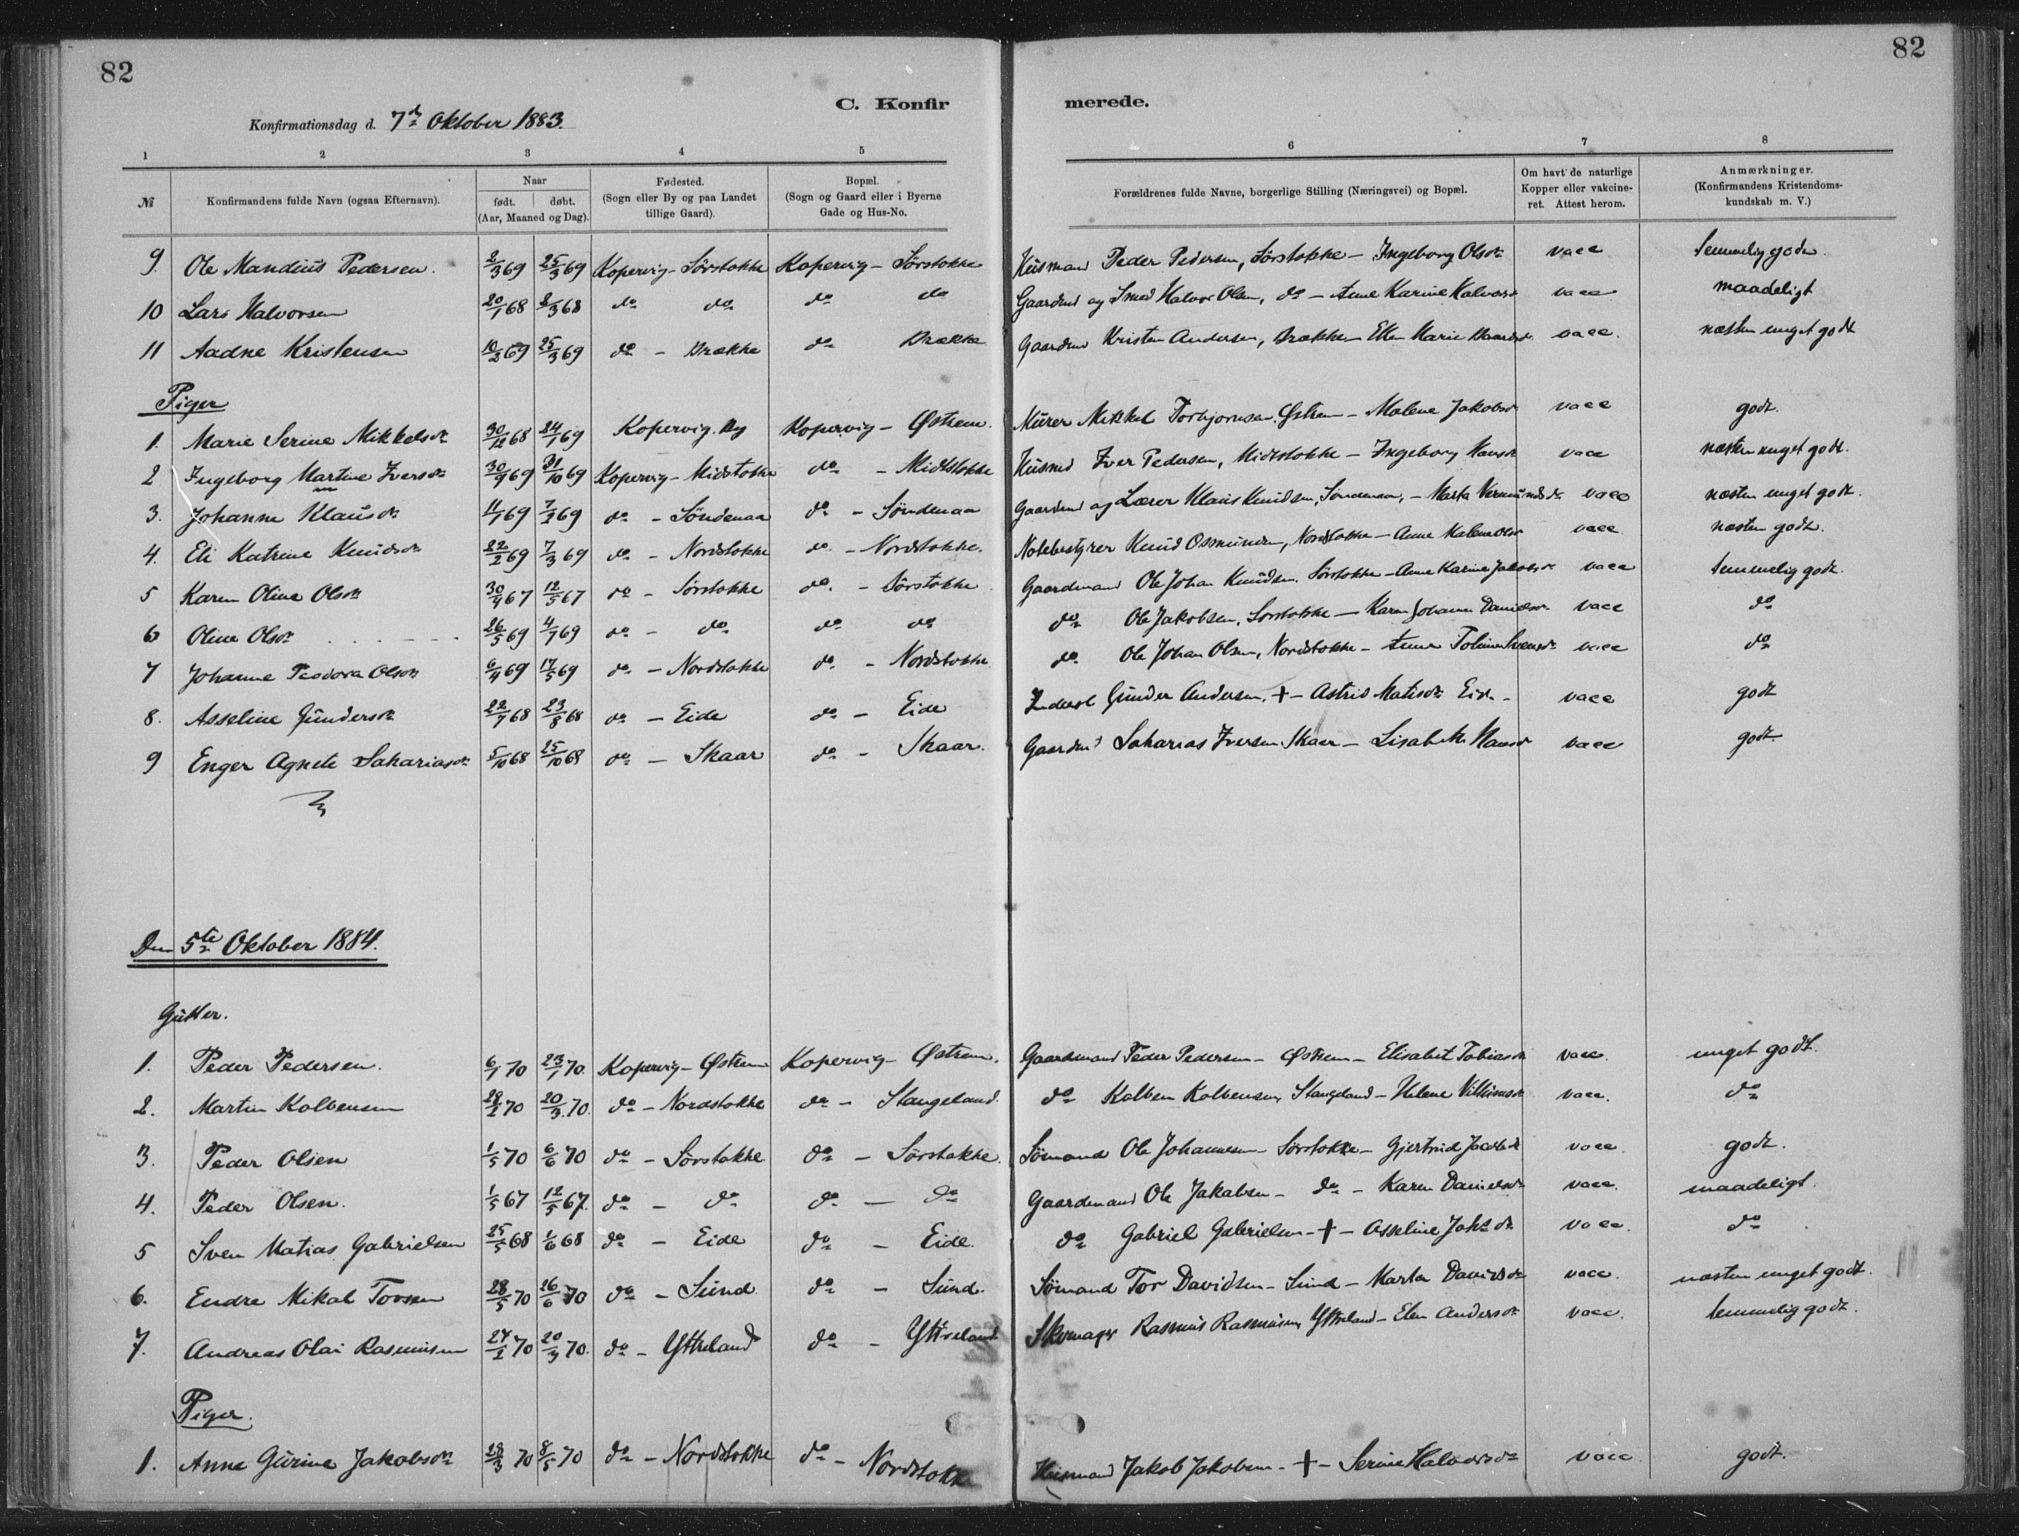 82
82
C. Konfir merede.
Konfirmationsdag d. 7de Oktober 1883.
1 2 3 4 5 6 7 8
№ Konfirmandens fulde Navn (ogsaa Efternavn). Naar født. døbt. (Aar, Maaned og Dag). Fødested. (Sogn eller By og paa Landet tillige Gaard). Bopæl. (Sogn og Gaard eller i Byerne Gade og Hus-No. Forældrenes fulde Navne, borgerlige Stilling (Næringsvei) og Bopæl. Om havt de naturlige Kopper eller vakcineret. Attest herom. Anmærkninger. (Konfirmandens Kristendomskundskab m. V.)
9. Ole Mandius Pedersen. 2/3 69 25/3 69 Kopervig - Sørstokke Kopervig - Sørstokke Husmand Peder Pedersen, Sørstokke - Ingeborg Olsdr vacc temmelig godt
10 Lars Halvorsen 20/1 68 8/3 68 do do do do Gaardmd og Smed Halvor Olsen, do - Anne Karine Halvorsd vacc maadeligt
11 Aadne Kristensen 10/2 69 25/3 69 do - Brække do Brække Gaardmd Kristen Andersen, Brække - Ellen Marie vacc. næsten meget godt
Piger
1. Marie Serine Mikkelsdr 30/12 68 24/1 69 Kopervig By Kopervig - Østrem. Murer Mikkel Torbjørnsen Østrem - Malene Jakobsd vacc godt.
2 Ingeborg Martine Iversdr 30/9 69 31/10 69 Kopervig - Midtstokke do - Midtstokke Husmd Iver Pedersen, Midtstokke - Ingeborg Hansdr vacc næsten meget godt.
3. Johanne Klausdr 11/1 69 7/2 69 do - Søndenaa do - Søndenaa Gaardmd og Lærer Klaus Knudsen, Søndenaa, - Marta Vermundsdr vacc næsten meget godt.
4. Eli Katrine Knudsdr 22/2 69 7/3 69 do - Nordstokke do - Nordstokke. Notebestyrer Knud Osmundsen, Nordstokke - Anne Malene Olsd vacc næsten godt.
5 Karen Oline Olsdr 30/4 67 12/5 67 do - Sørstokke do. - Sørstokke Gaardmand Ole Johan Knudsen. Sørstokke - Anne Karine Jakobsdr vacc temmelig godt.
6 Oline Olsdr 26/5 69 4/7 69 do - do do do do Ole Jakobsen, Sørstokke - Karen Johanne Danielsdr vacc do
7 Johanne Teodora Olsdr 6/4 69 17/5 69 do - Nordstokke do - Nordstokke do Ole Johan Olsen, Nordstokke - Anne vacc do
8. Asseline Gundersdr 22/7 68 23/8 68 do - Eide do - Eide Inderst Gunder Andersen, + - Astrid Matisdr Eide - vacc godt
9 Enger Agnete Sahariasdr 5/10 68 25/10 68 do - Skaar do - Skaar. Gaardmd Saharias Iversen, Skaar - Lisabeth Hansdr vacc godt.
Den 5te Oktober 1884.
Gutter.
1. Peder Pedersen. 6/1 70 23/1 70. Kopervig - Østrem Kopervig - Østrem. Gaardmand Peder Pedersen - Østrem - Elisabet Tobiasdr vacc. meget godt.
2. Martin Kolbensen 28/2 70 20/3 70. do - Nordstokke do - Stangeland. do Kolben Kolbensen, Stangeland - Helene vacc. do
3. Peder Olsen 1/5 70 6/6 70 do - Sørstokke do - Sørstokke. Sømand Ole Johannesen - Sørstokke - Gjertrud Jacobsdr vacc. godt.
4. Peder Olsen. 1/5 67 12/5 67. do - do do - do Gaardmand Ole Jakobsen - do - Karen Danielsdr vacc. maadeligt.
5 Sven Matias Gabrielsen 25/5 68 1/6 68 do - Eide do - Eide. do Gabriel Gabrielsen - + - Asseline vacc. do
6. Endre Mikal Torsen 28/5 70 26/6 70 do - Sund. do - Sund. Sømand Tor Davidsen - Sund - Marta Davidsdr vacc. næsten meget godt.
7. Andreas Olai Rasmussen 24/2 70 20/3 70. do - Yttreland do - Yttreland Skomager Rasmus Rasmussen, Yttreland - Elen Andersdr vacc. temmelig godt.
Piger.
1. Anne Gurine Jakobsdr 28/3 70 8/5 70 do - Nordstokke do - Nordstokke Husmand Jakob Jakobsen - + - Serine Halvorsdr vacc. godt.